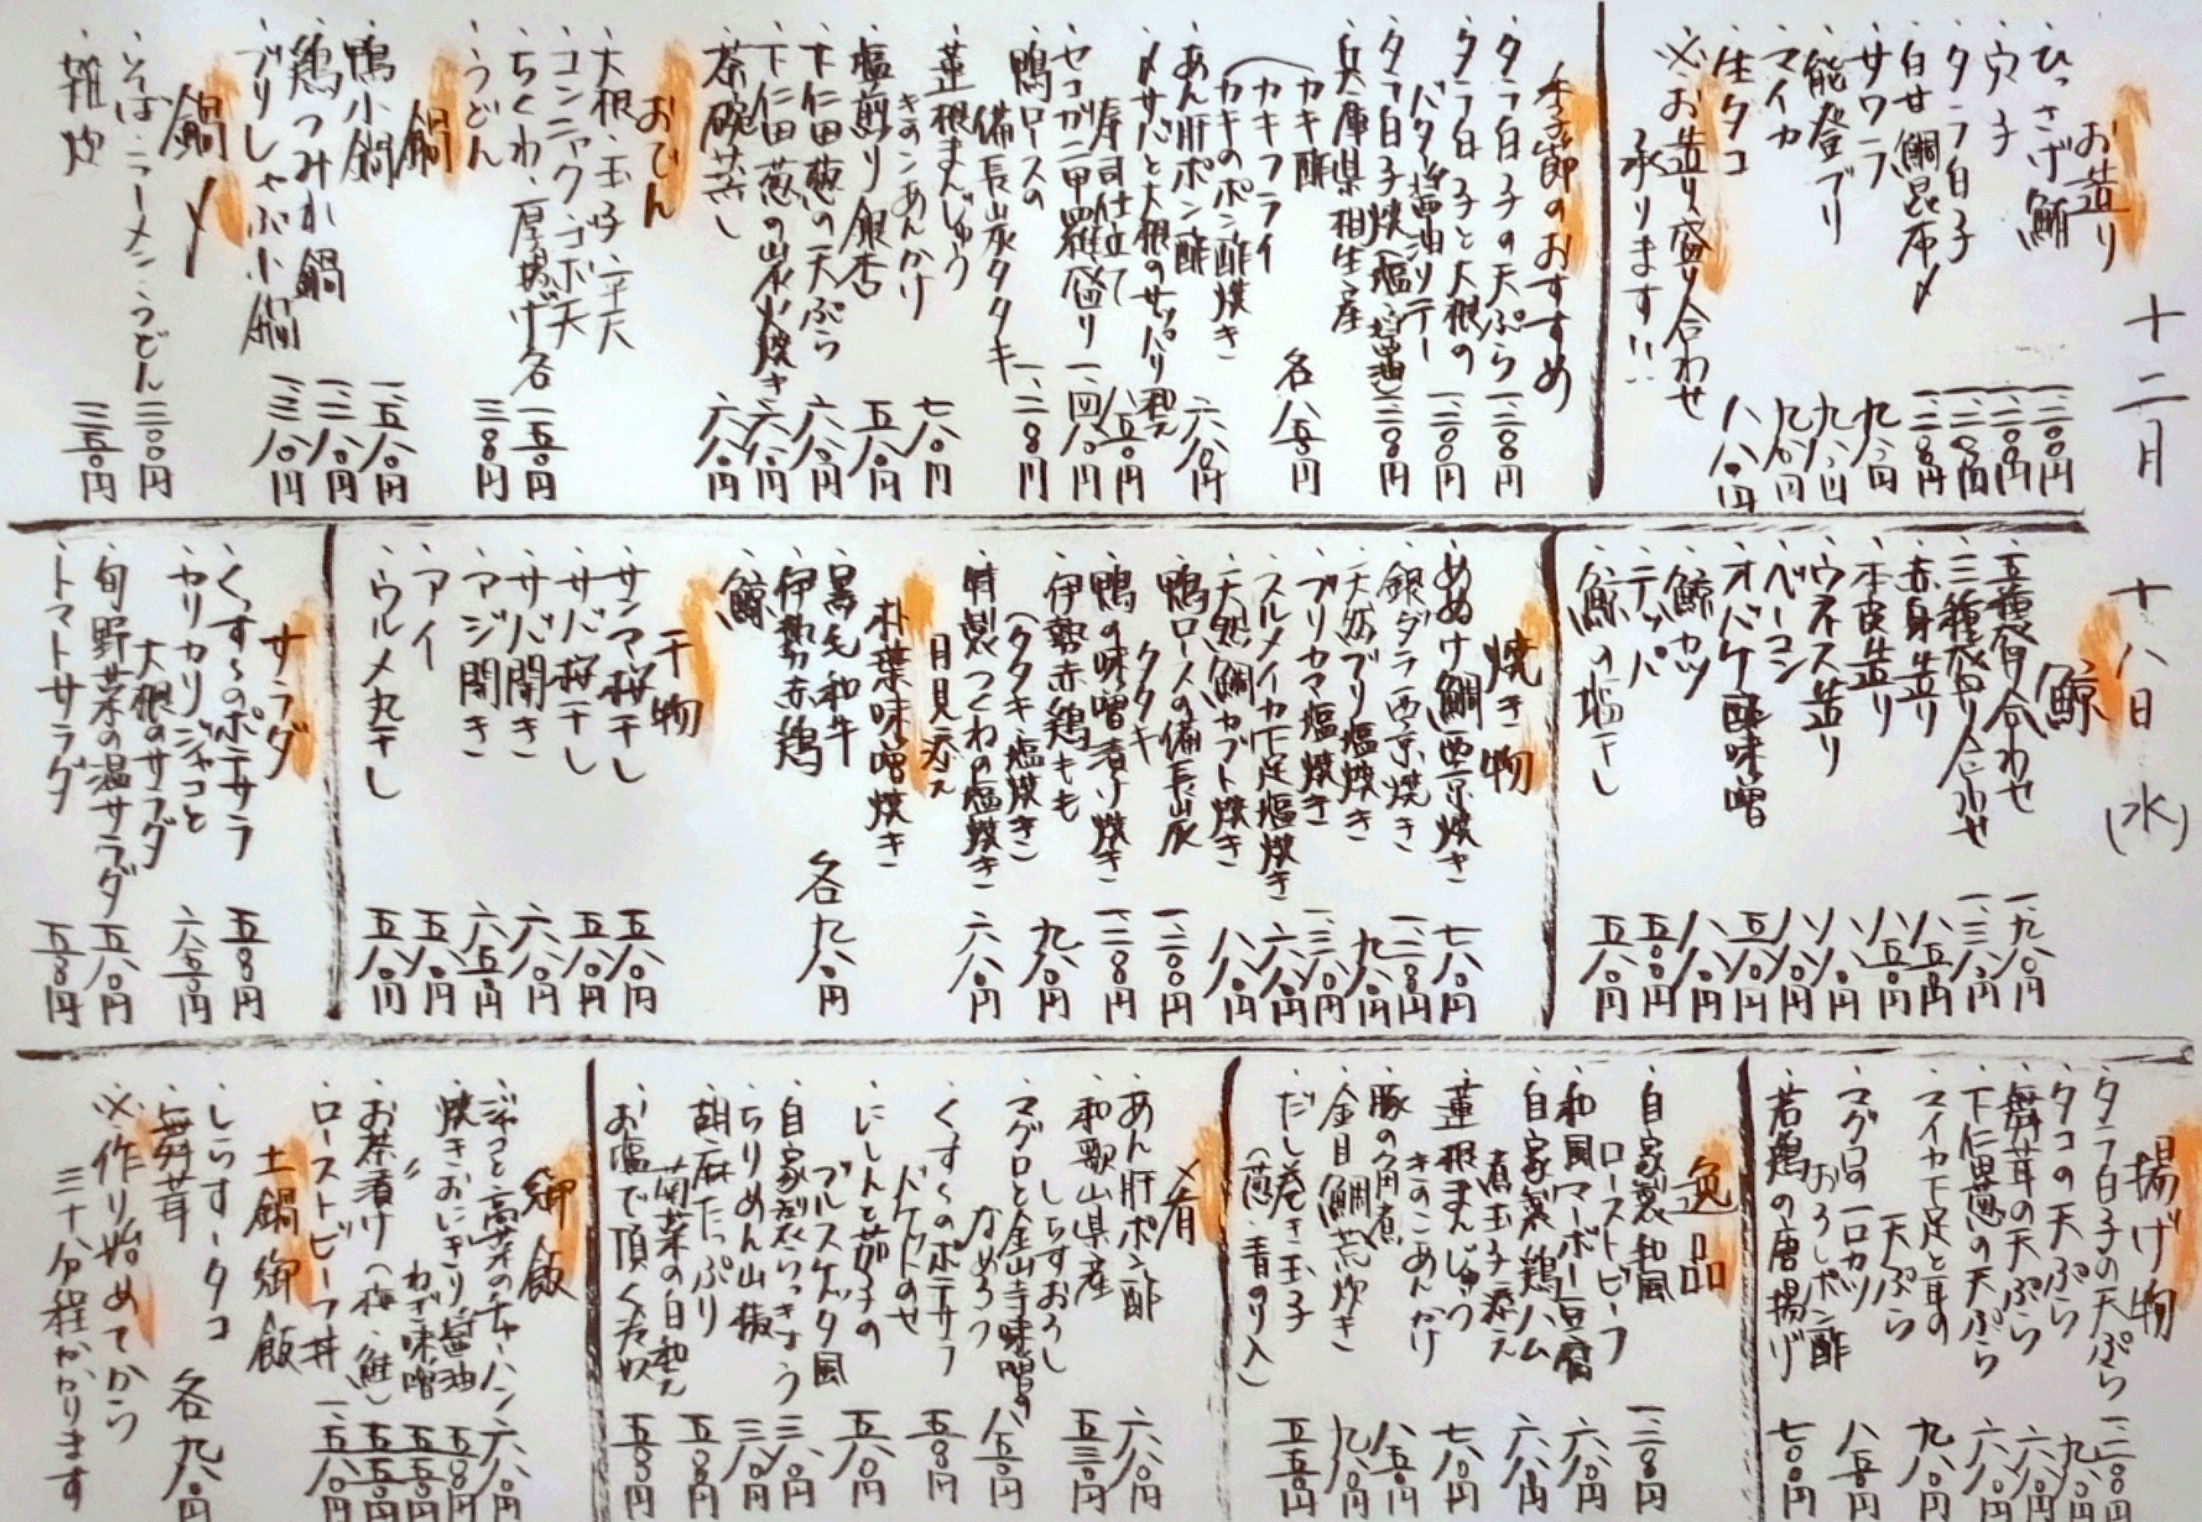 十二月 十八日 (水)
お造り
・ひっさげ鮪 一、二〇〇円
・穴子 一、二〇〇円
・タラ白子 一、二〇〇円
・白甘鯛昆布〆 一、二〇〇円
・サワラ 九八〇円
・能登ブリ 九八〇円
・マイカ 九八〇円
・生タコ 八八〇円
※お造り盛り合わせ
承ります!!
季節のおすすめ
・タラ白子の天ぷら 一、二〇〇円
・タラ白子と大根の
バター醤油ソテー 一、二〇〇円
・タラ白子焼(塩・醤油) 一、二〇〇円
・兵庫県相生産
カキ酢
カキフライ
カキのポン酢焼き 各八五〇円
・あん肝ポン酢 六八〇円
・〆サバと大根のサッパリ和え
寿司仕立て 八五〇円
・セコガニ甲羅盛り 一、四八〇円
・鴨ロースの
備長炭タタキ 一、二〇〇円
・蓮根まんじゅう
きのこあんかけ 七八〇円
・塩煎り銀杏 五八〇円
・下仁田葱の天ぷら 六八〇円
・下仁田葱の炭火焼き 六八〇円
・茶碗蒸し 六八〇円
おでん
・大根・玉子・平天
コンニャク・ゴボ天
ちくわ・厚揚げ 各一五〇円
・うどん 三〇〇円
鍋
・鴨小鍋 一、五八〇円
・鶏つみれ鍋 一、二八〇円
・ブリしゃぶ小鍋 一、三八〇円
鍋〆
・そば・ラーメン・うどん 三〇〇円
・雑炊 三五〇円
鯨
・五種盛り合わせ 一、九八〇円
・三種盛り合わせ 一、三八〇円
・赤身造り 八五〇円
・本皮造り 八五〇円
・ウネス造り 八八〇円
・ベーコン 八八〇円
・オバケ酢味噌 五八〇円
・鯨カツ 八八〇円
・テッパ 五〇〇円
・鯨の塩干し 五八〇円
焼き物
・めぬけ鯛西京焼き 七八〇円
・銀ダラ西京焼き 一、二〇〇円
・天然ブリ塩焼き 九八〇円
・ブリカマ塩焼き 一、三八〇円
・スルメイカ下足塩焼き 六八〇円
・天然鯛カブト焼き 八八〇円
・鴨ロースの備長炭
タタキ 一、二〇〇円
・鴨の味噌漬け焼き 一、二〇〇円
・伊勢赤鶏もも
(タタキ・塩焼き) 九八〇円
・特製つくねの塩焼き
月見添え 六八〇円
朴葉味噌焼き
・黒毛和牛
・伊勢赤鶏
・鯨 各九八〇円
干物
・サンマ桜干し 五八〇円
・サバ桜干し 五八〇円
・サバ開き 六八〇円
・アジ開き 六五〇円
・アイ 五八〇円
・ウルメ丸干し 五八〇円
サラダ
・くっす〜のポテサラ 五〇〇円
・カリカリジャコと
大根のサラダ 六五〇円
・旬野菜の温サラダ 五八〇円
・トマトサラダ 五五〇円
揚げ物
・タラ白子の天ぷら 一、二〇〇円
・タコの天ぷら 九八〇円
・舞茸の天ぷら 六八〇円
・下仁田葱の天ぷら 六八〇円
・マイカ下足と耳の
天ぷら 九八〇円
・マグロの一口カツ
おろしポン酢 八五〇円
・若鶏の唐揚げ 七〇〇円
逸品
・自家製和風
ローストビーフ 一、二〇〇円
・和風マーボー豆腐 六八〇円
・自家製鶏ハム
煮玉子添え 六八〇円
・蓮根まんじゅう
きのこあんかけ 七八〇円
・豚の角煮 八五〇円
・金目鯛荒炊き 九八〇円
・だし巻き玉子
(葱・青のり入) 五五〇円
肴
・あん肝ポン酢 六八〇円
・和歌山県産
しらすおろし 五三〇円
・マグロと金山寺味噌の
なめろう 八五〇円
・くっす〜のポテサラ
バケットのせ 五〇〇円
・にしんと茄子の
ブルスケッタ風 五八〇円
・自家製らっきょう 三八〇円
・ちりめん山椒 三八〇円
・胡麻たっぷり
菊菜の白和え 五八〇円
・お塩で頂く冷奴 五〇〇円
御飯
・ジャコと高菜のチャーハン 六八〇円
・焼きおにぎり醤油 五〇〇円
〃 ねぎ味噌 五五〇円
・お茶漬け(梅・鮭) 五五〇円
・ローストビーフ丼 一、五八〇円
土鍋御飯
・しらす・タコ
・舞茸 各九八〇円
※作り始めてから
三十分程かかります